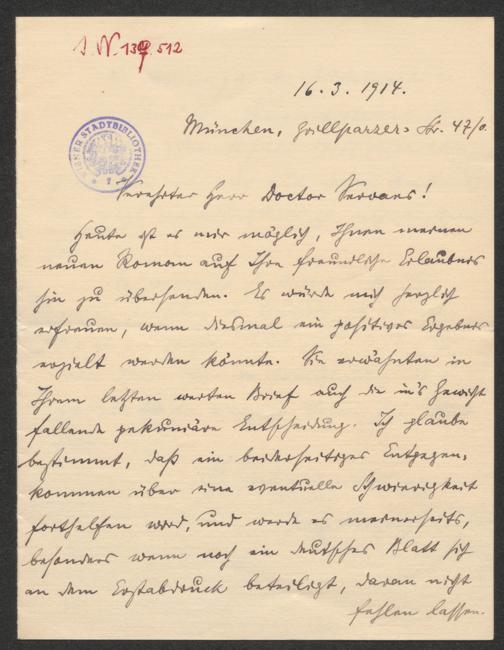 J. N. 139.512
16. 3. 1914.
München, Grillparzer-Str. 47/0.
WIENER STADTBIBLIOTHEK
Verehrter Herr Doctor Servaes!
Heute ist es mir möglich, Ihnen meinen
neuen Roman auf Ihre freundliche Erlaubnis
hin zu übersenden. Es würde mich herzlich
erfreuen, wenn diesmal ein positives Ergebnis
erzielt werden könnte. Sie erwähnten in
Ihrem letzten werten Brief auch die in's Gewicht
fallende pekuniäre Entscheidung. Ich glaube
bestimmt, daß ein beiderseitiges Entgegen-
kommen über eine eventuelle Schwierigkeit
forthelfen wird, und werde es meinerseits,
besonders wenn noch ein deutsches Blatt sich
an dem Erstabdruck beteiligt, daran nicht
fehlen lassen.